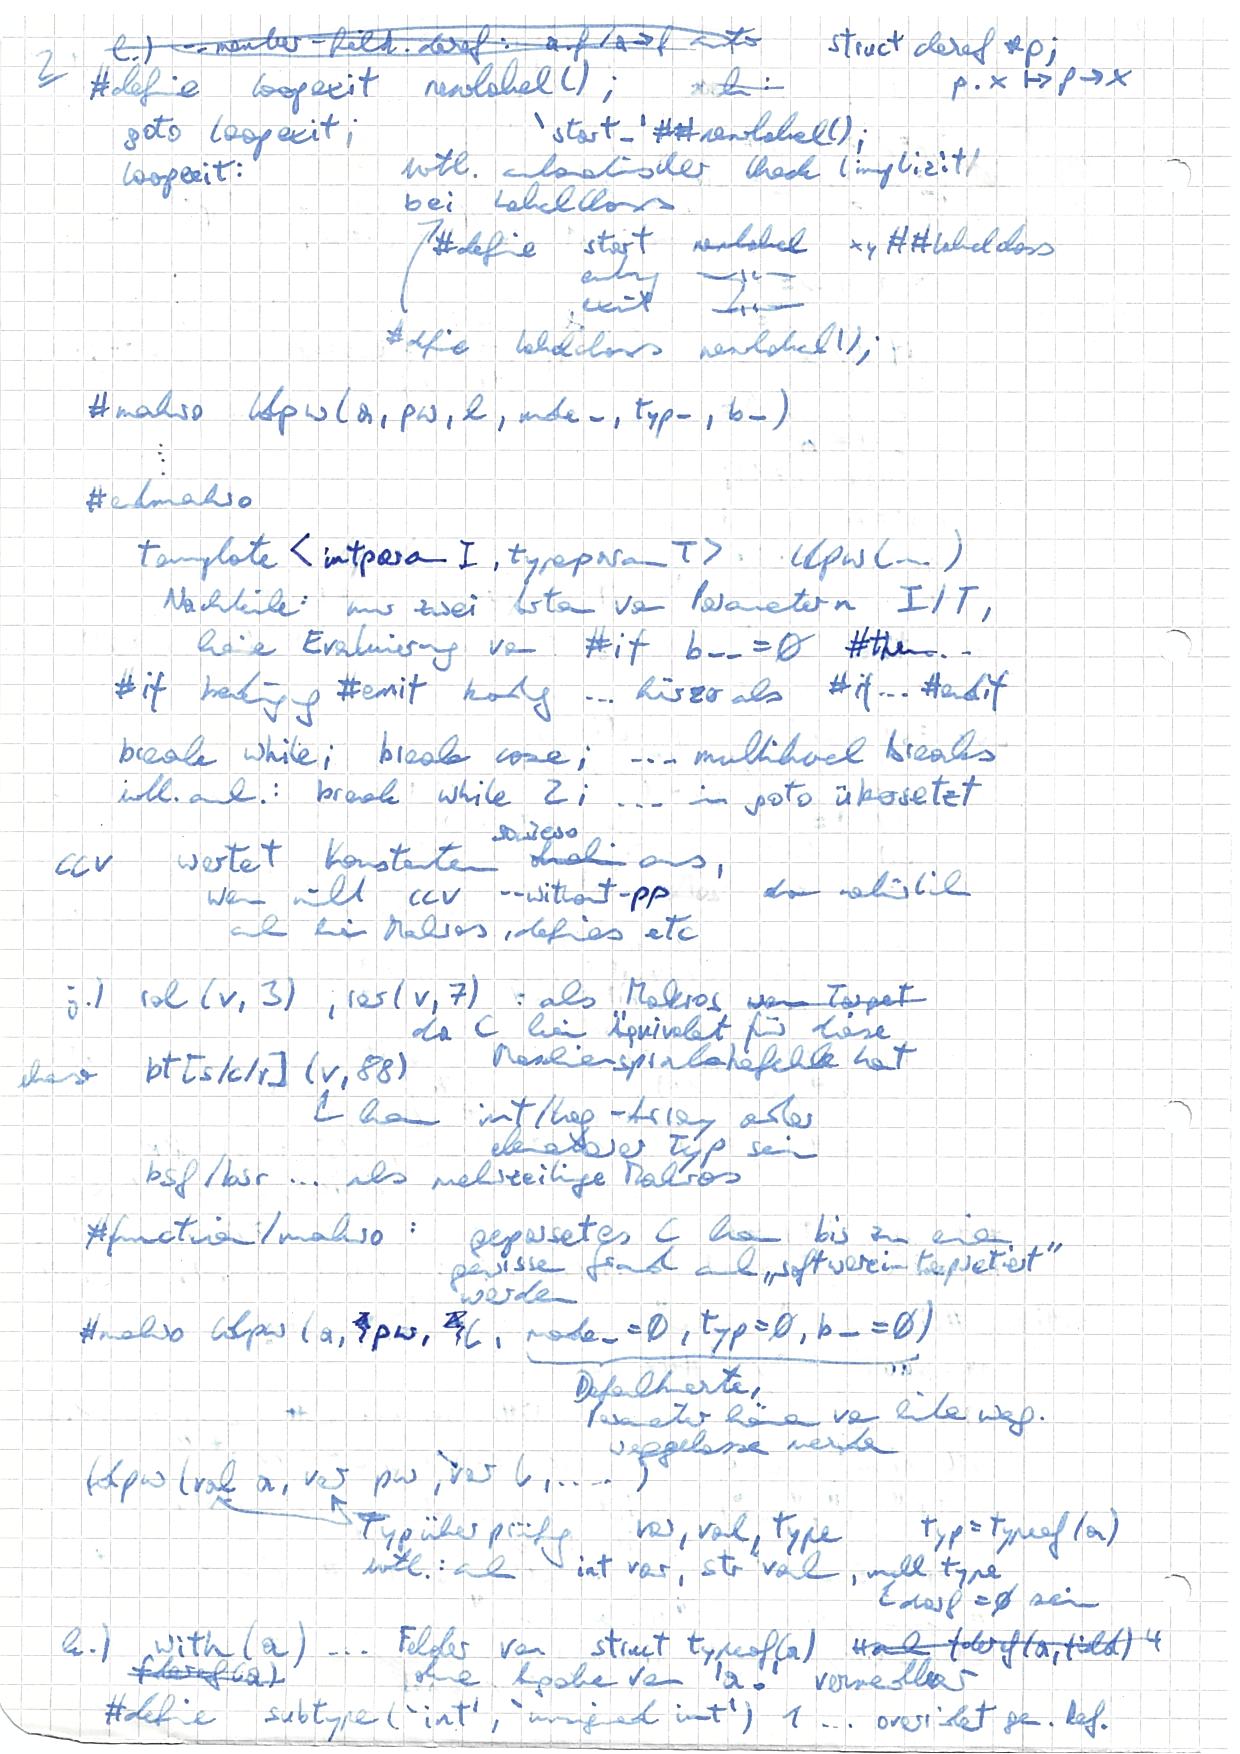 2
l.) --member-field.deref: a.f/a->f auto struct deref *p;
#define loopexit newlabel(); p.x ↦ p->x
goto loopexit; 'start_'##newlabel();
loopexit: wtl. automatischer Check (implizit)
bei labelclass
#define start newlabel xy##labelclass
entry —"—
exit —"—
#define labelclass newlabel();
#makro (a, pw, l, mode_, typ_, b_)
⋮
#endmakro
template <intparam I, typeparam T> (...)
Nachteile: nur zwei Arten von Parametern I/T,
keine Evaluierung von #if b__=0 #then...
#if bedingung #emit kodg ... kürzer als #if... #endif
break while; break case; ... multilevel breaks
wtl. auch: break while 2; ... in goto übersetzt
ccv wertet Konstanten sowieso aus,
wenn nicht ccv --without-pp, dann natürlich
auch kein Makros, defines etc
j.) rol (v, 3), ror(v, 7) : als Makros wenn Target
da C kein Äquivalent für diese
Maschinensprachebefehle hat
bt[s/c/r] (v, 88)
kann int/ -Array oder
elementarer Typ sein
bsf/bsr ... als mehrzeilige Makros
#function/makro : geparsetes C kann bis zu einem
gewissen Grad auch „softwareinterpretiert"
werden
#makro (a, pw, l, mode_=0, typ=0, b_=0)
Defaultwerte,
Parameter können von weg.
weggelassen werden
(val a, var pw, var l, .....)
Typüberprüfung var, val, type typ=typeof(a)
wtl.: auch int var, str val, null type
darf =0 sein
k.) with(a) ... Felder von struct typeof(a) fderef(a,field) 4
fderef(a) ohne Angabe von 'a.' verwendbar
#define subtype('int', 'unsigned int') 1 ... overridet gen. Def.